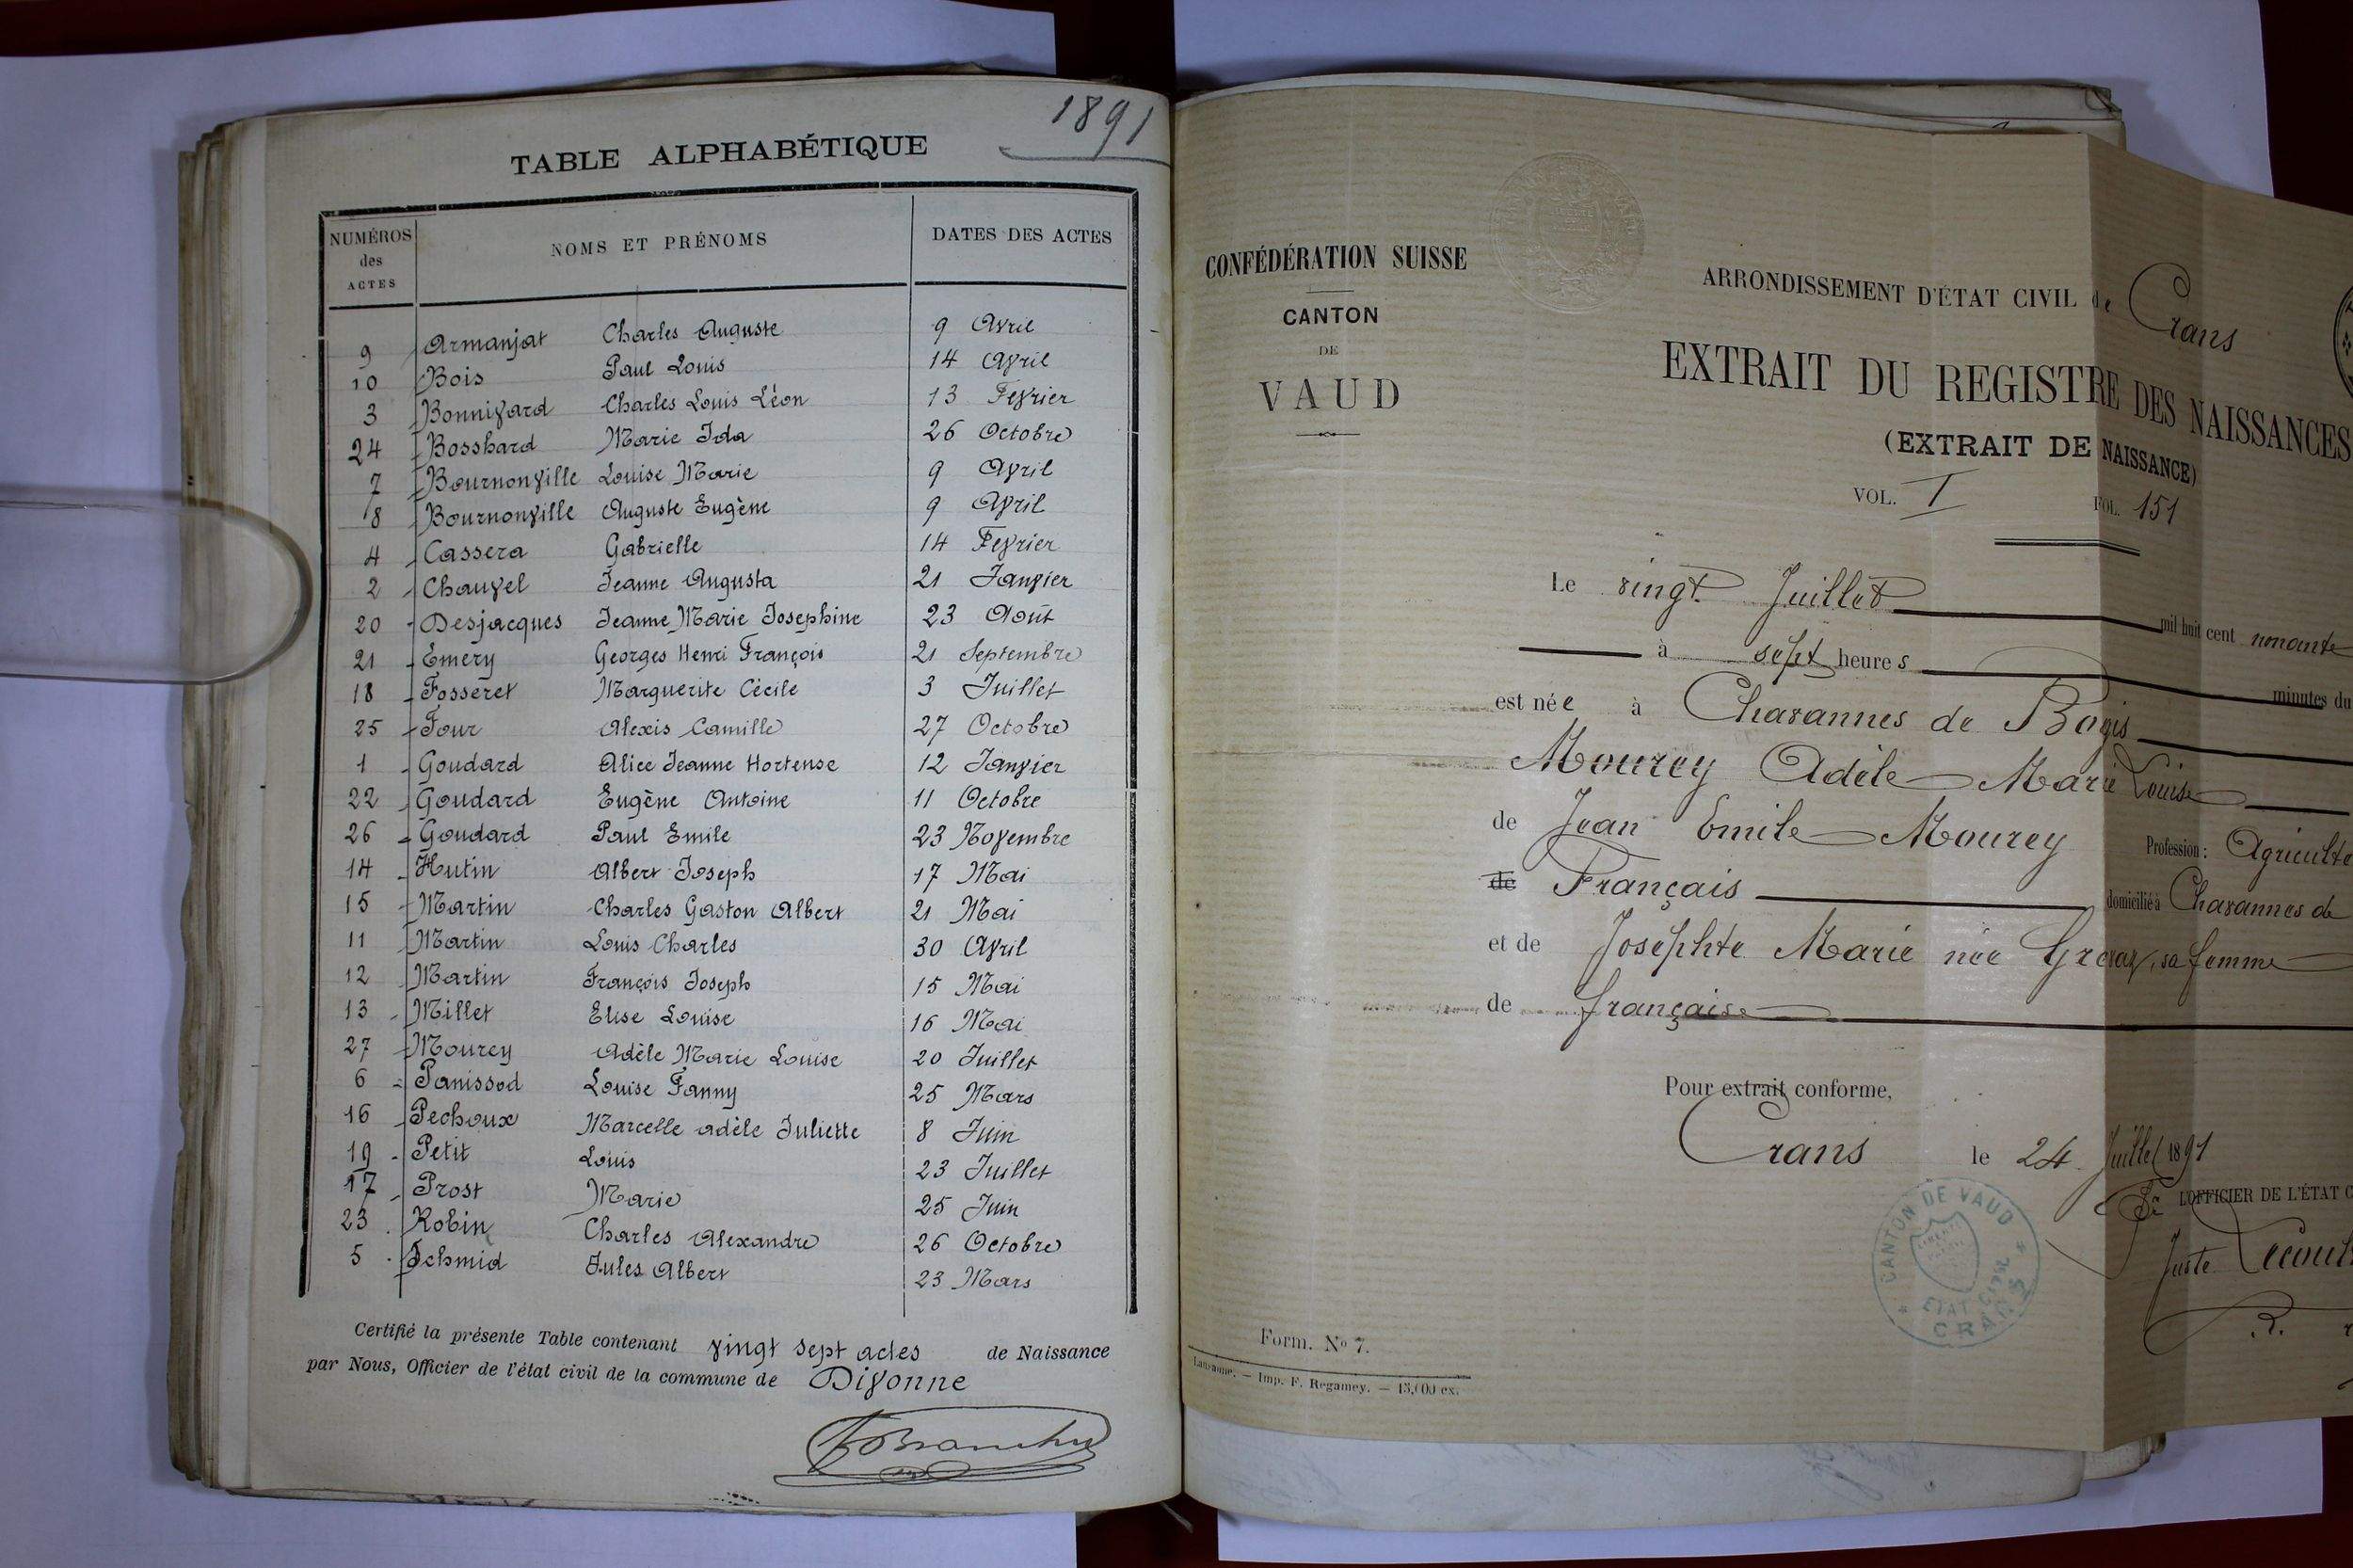 1891
TABLE ALPHABÉTIQUE
NUMÉROS des ACTES
NOMS ET PRÉNOMS
DATES DES ACTES
9 Armanjat Charles Auguste 9 Avril
10 Bois Paul Louis 14 Avril
3 Bonnivard Charles Louis Léon 13 Fevrier
24 Bosshard Marie Ida 26 Octobre
7 Bournonville Louise Marie 9 Avril
8 Bournonville Auguste Eugène 9 Avril
4 Cassera Gabrielle 14 Fevrier
2 Chauvel Jeanne Augusta 21 Janvier
20 Desjacques Jeanne Marie Josephine 23 Août
21 Emery Georges Henri François 21 Septembre
18 Fosseret Marguerite Cécile 3 Juillet
25 Four Alexis Camille 27 Octobre
1 Goudard Alice Jeanne Hortense 12 Janvier
22 Goudard Eugène Antoine 11 Octobre
26 Goudard Paul Emile 23 Novembre
14 Hutin Albert Joseph 17 Mai
15 Martin Charles Gaston Albert 21 Mai
11 Martin Louis Charles 30 Avril
12 Martin François Joseph 15 Mai
13 Millet Elise Louise 16 Mai
27 Mourey Adèle Marie Louise 20 Juillet
6 Panissod Louise Fanny 25 Mars
16 Pechoux Marcelle Adèle Juliette 8 Juin
19 Petit Louis 23 Juillet
17 Prost Marie 25 Juin
23 Robin Charles Alexandre 26 Octobre
5 Schmid Jules Albert 23 Mars
Certifié la présente Table contenant vingt sept actes de Naissance
par Nous, Officier de l'état civil de la commune de Divonne
CONFÉDÉRATION SUISSE
CANTON
DE
VAUD
ARRONDISSEMENT D'ÉTAT CIVIL de Crans
EXTRAIT DU REGISTRE DES NAISSANCES
(EXTRAIT DE NAISSANCE)
VOL. I FOL. 151
Le vingt Juillet mil huit cent nonante
à sept heures minutes du
est née à Chavannes de Bogis
Mourey Adèle Marie Louise
de Jean Emile Mourey Profession: Agriculte
de Français domicilié à Chavannes de
et de Josephte Marie née Grevaz, sa femme
de française
Pour extrait conforme,
Crans le 24 Juillet 1891
L'OFFICIER DE L'ÉTAT C
Juste
CANTON DE VAUD
ETAT CIVIL
CRANS
Form. No 7.
Lausanne. — Imp. F. Regamey. — 15,000 ex.